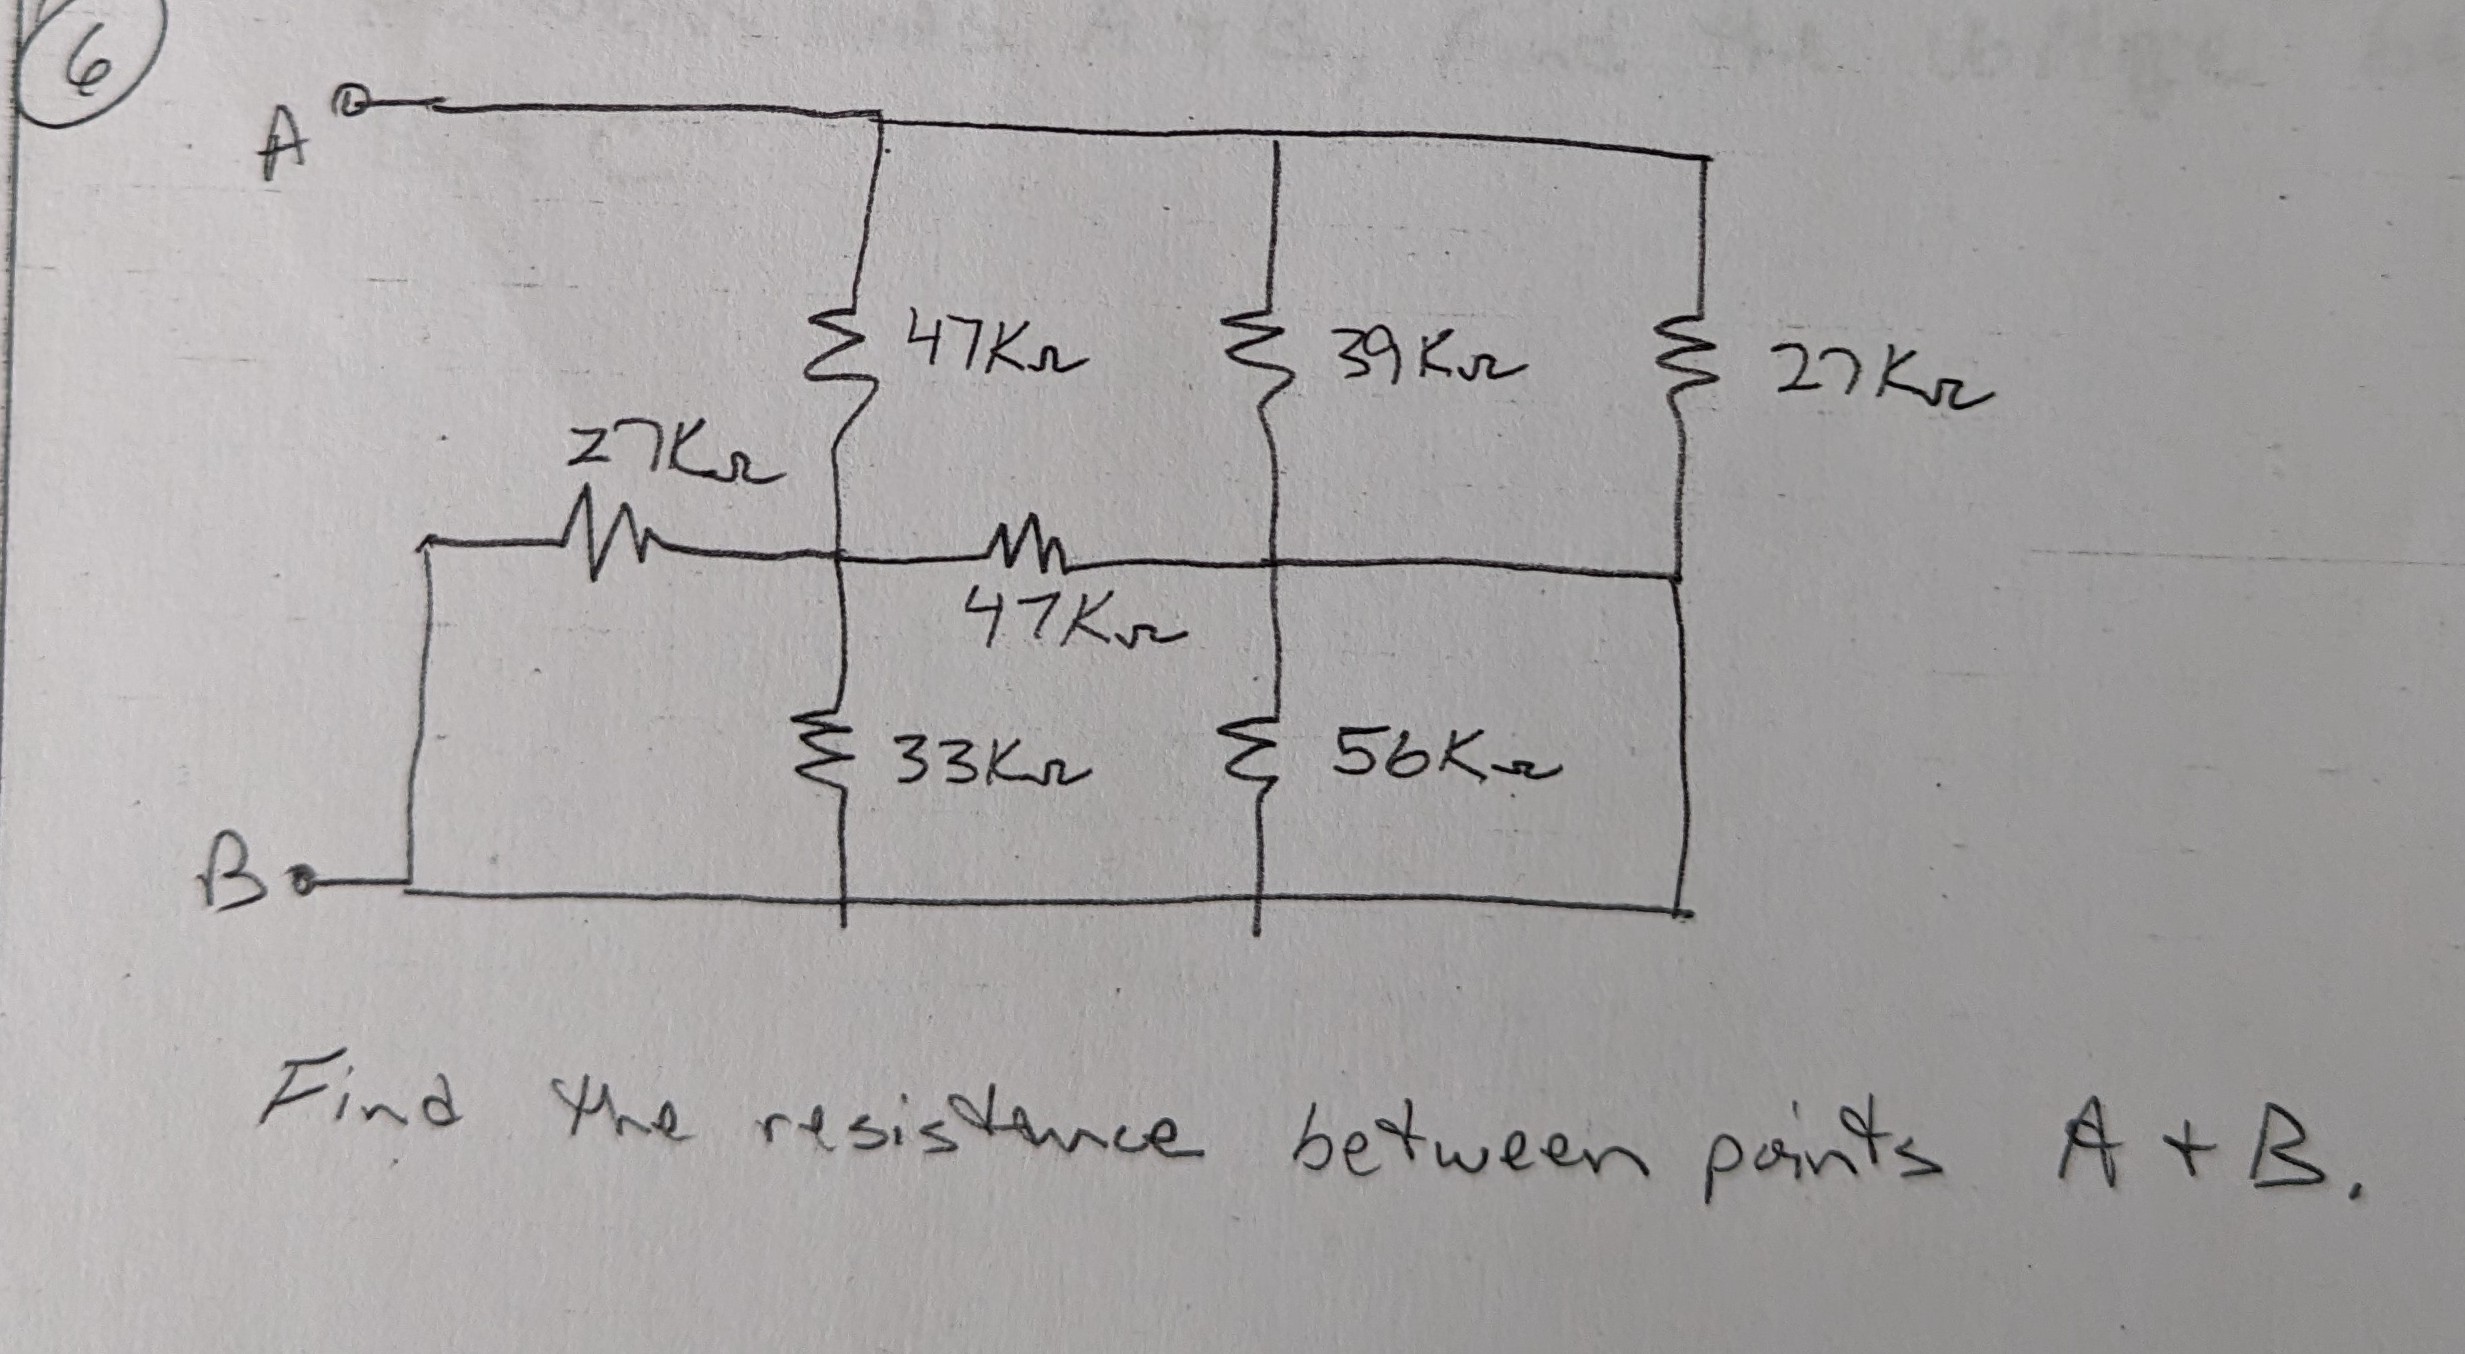 6
A
47KΩ
39KΩ
27KΩ
27KΩ
47KΩ
33KΩ
56KΩ
B
Find the resistance between points A + B.